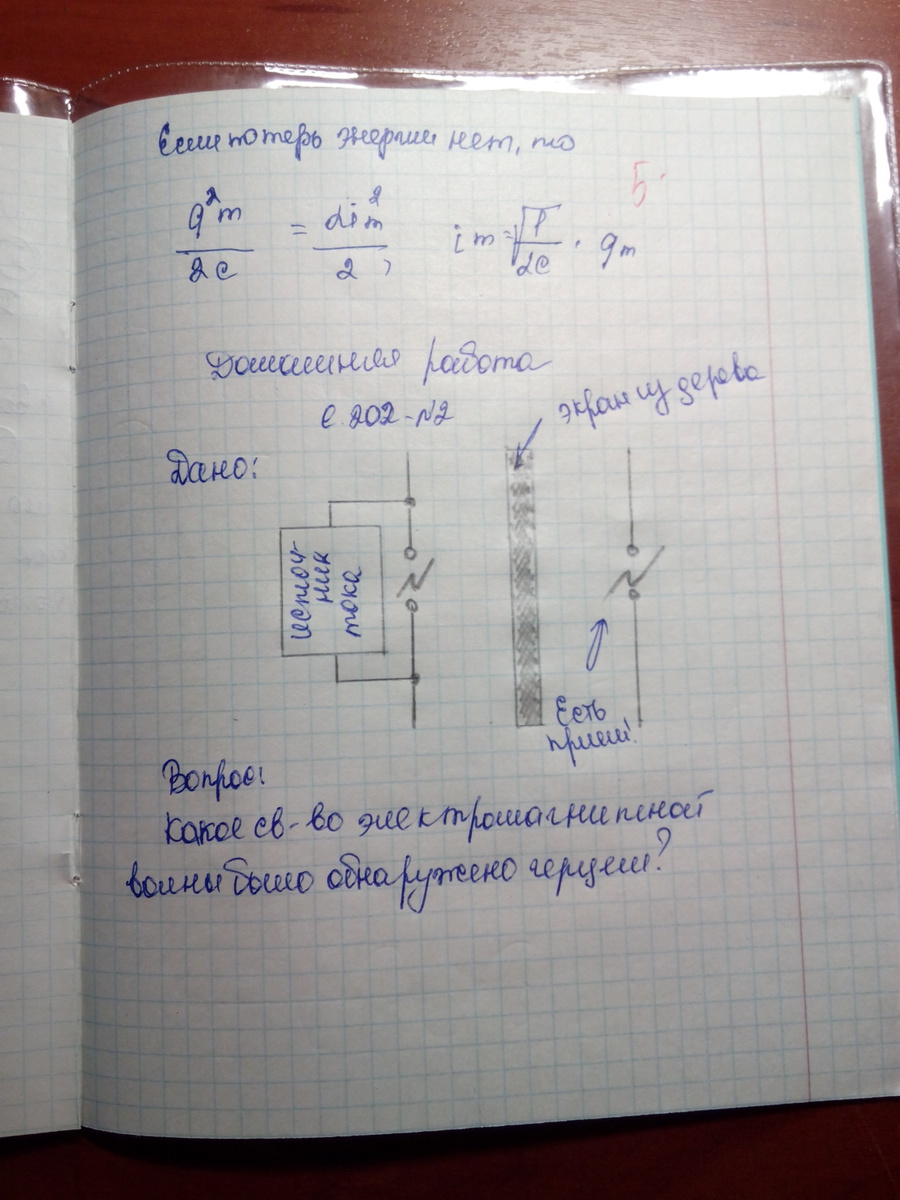 Если потерь энергии нет, то
5
q²m / 2c = Li²m / 2, im = √1 / Lc · qm
Домашняя работа
с. 202 - №2
экран из дерева
Дано:
источ-
ник
тока
Есть
прием!
Вопрос:
Какое св-во электромагнитной
волны было обнаружено герцем?